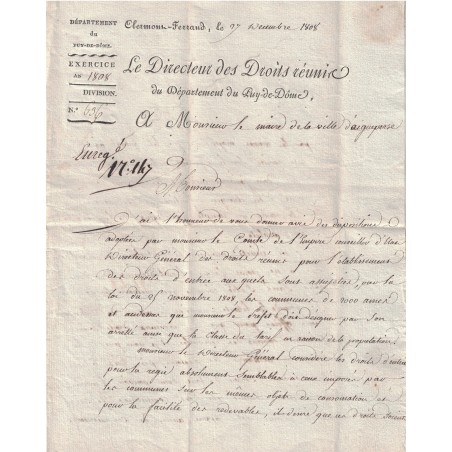 DÉPARTEMENT
du
PUY-DE-DÔME.
EXERCICE
AN 1808
DIVISION.
N.° 636
Clermont-Ferrand, le 27 Décembre 1808
Le Directeur des Droits réunis
du Département du Puy-de-Dôme,
A Monsieur le maire de la ville d'aigueperse
Enreg.
N.° 147
Monsieur
J'ai l'honneur de vous donner avis des dispositions
adoptées par monsieur le Comte de l'Empire conseiller d'état
Directeur Général des droits réunis pour l'établissement
des droits d'entrée auxquels sont assujeties, par la
loi du 25 novembre 1808, les communes de 2000 ames
et audessus que monsieur le préfet doit designer par son
arrêté ainsi que la classe du tarif en raison de la population
monsieur le Directeur Général considère les droits d'entrée
pour la regie absolument semblables à ceux imposés par
les communes sur les mêmes objets de consomation et
pour la facilité des redevables, il desire que ces droits